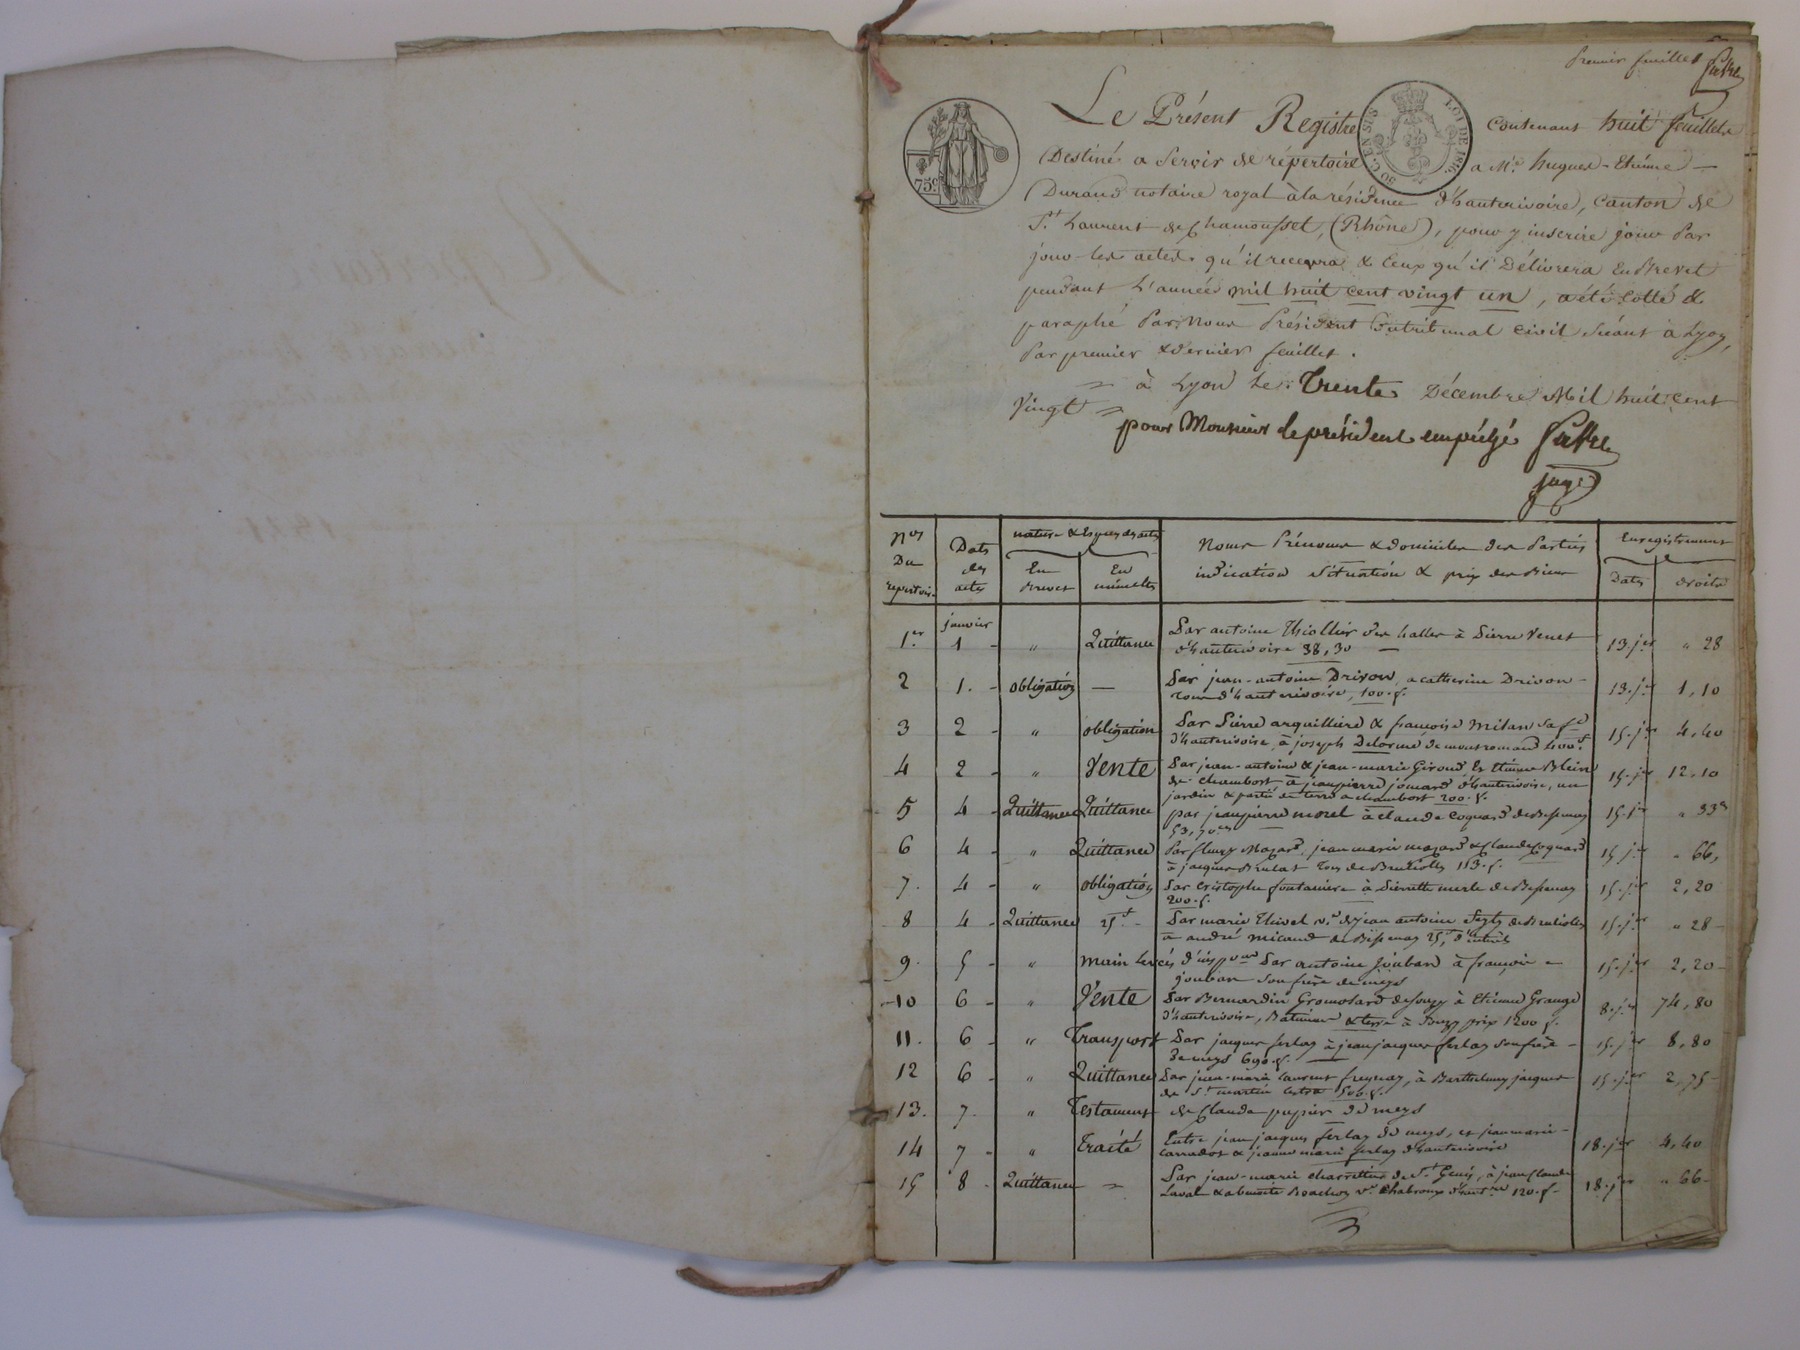 Premier feuillet
75c
50 C. EN SUS LOI DE 1816
Le Présent Registre contenant huit feuillets
Destiné a Servir de répertoire a Me. hugues-Etienne
Durand notaire royal à la résidence d'hauterivoire, canton de
St. Laurent de Chamousset, (Rhône), pour y inscrire jour Par
jour les actes qu'il recevra & Ceux qu'il Délivrera En Brevet
pendant L'année mil huit cent vingt un, a été cotté &
paraphé Par Nous Président Du tribunal civil Séant à Lyon,
Par premier & dernier feuillet.
à Lyon Le Trente Décembre Mil huit Cent
Vingt
pour Monsieur le président empêché
juge
Nos Du repertoire
Dates des actes
nature & Especes des actes
En Brevet
En minuttes
Noms Prénoms & domiciles des Parties
indication Situation & prix des Biens
Enregistrement
Dates
droits
1er. janvier 1 " Quittance Par antoine Thiollier des halles à Pierre Venet 13. jer " 28
d'hauterivoire 38,30
2 1. obligation — Par jean-antoine Drivon, a catherine Drivon 13. jer 1,10
d'hauterivoire, 100. f.
3 2 " obligation Par Pierre arquilliere & françoise Milan sa fe 15. jer 4,40
d'hauterivoire, à joseph Delorme de montromand 400 f.
4 2 " Vente Par jean-antoine & jean-marie Giroud & Etienne Blein 15. jer 12,10
de chambost à jean pierre jomard d'hauterivoire, un
jardin & partie de terre a chambost 200. f.
5 4 Quittance Quittance par jean pierre morel à claude Coquard de Bessenay 15. jer " 33
53,70 c
6 4 " Quittance Par fleury Mazard, jean marie mazard & Claude Coquard 15 jer " 66,
à jacques de Brullioles 113. f.
7. 4 " obligation Par Cristophe fontaniere à Pierrette merle de Bessenay 15. jer 2,20
200. f.
8 4 Quittance 25 f Par marie Thivel ve de jean antoine de Brullioles 15. jer " 28
à andré micaud de Bessenay 25 f
9. 5 " main levée d'inspon Par antoine joubard à françois 15. jer 2,20
jouban Son frère de meys
10 6 " Vente Par Bernardin Gromolard de Souzy à Etienne Grange 8. jer 74,80
d'hauterivoire, Batiment & terre à Souzy prix 1200 f.
11. 6 " Transport Par jacques ferlay à jean jacques ferlay Son frère 15. jer 8,80
de meys 690. f.
12 6 " Quittance Par jean-marie Laurent freynay, à Barthelemy jacques 15. jer 2,75
de St. martin 506. f.
13. 7. " Testament de Claude papier de meys
14 7 " Traité Entre jean jacques ferlay de meys, et jean marie 18. jer 4,40
& jeanne marie ferlay d'hauterivoire
15 8 Quittance Par jean-marie charretier de St. Genis, à jean Claude 18. jer " 66
Laval 120. f